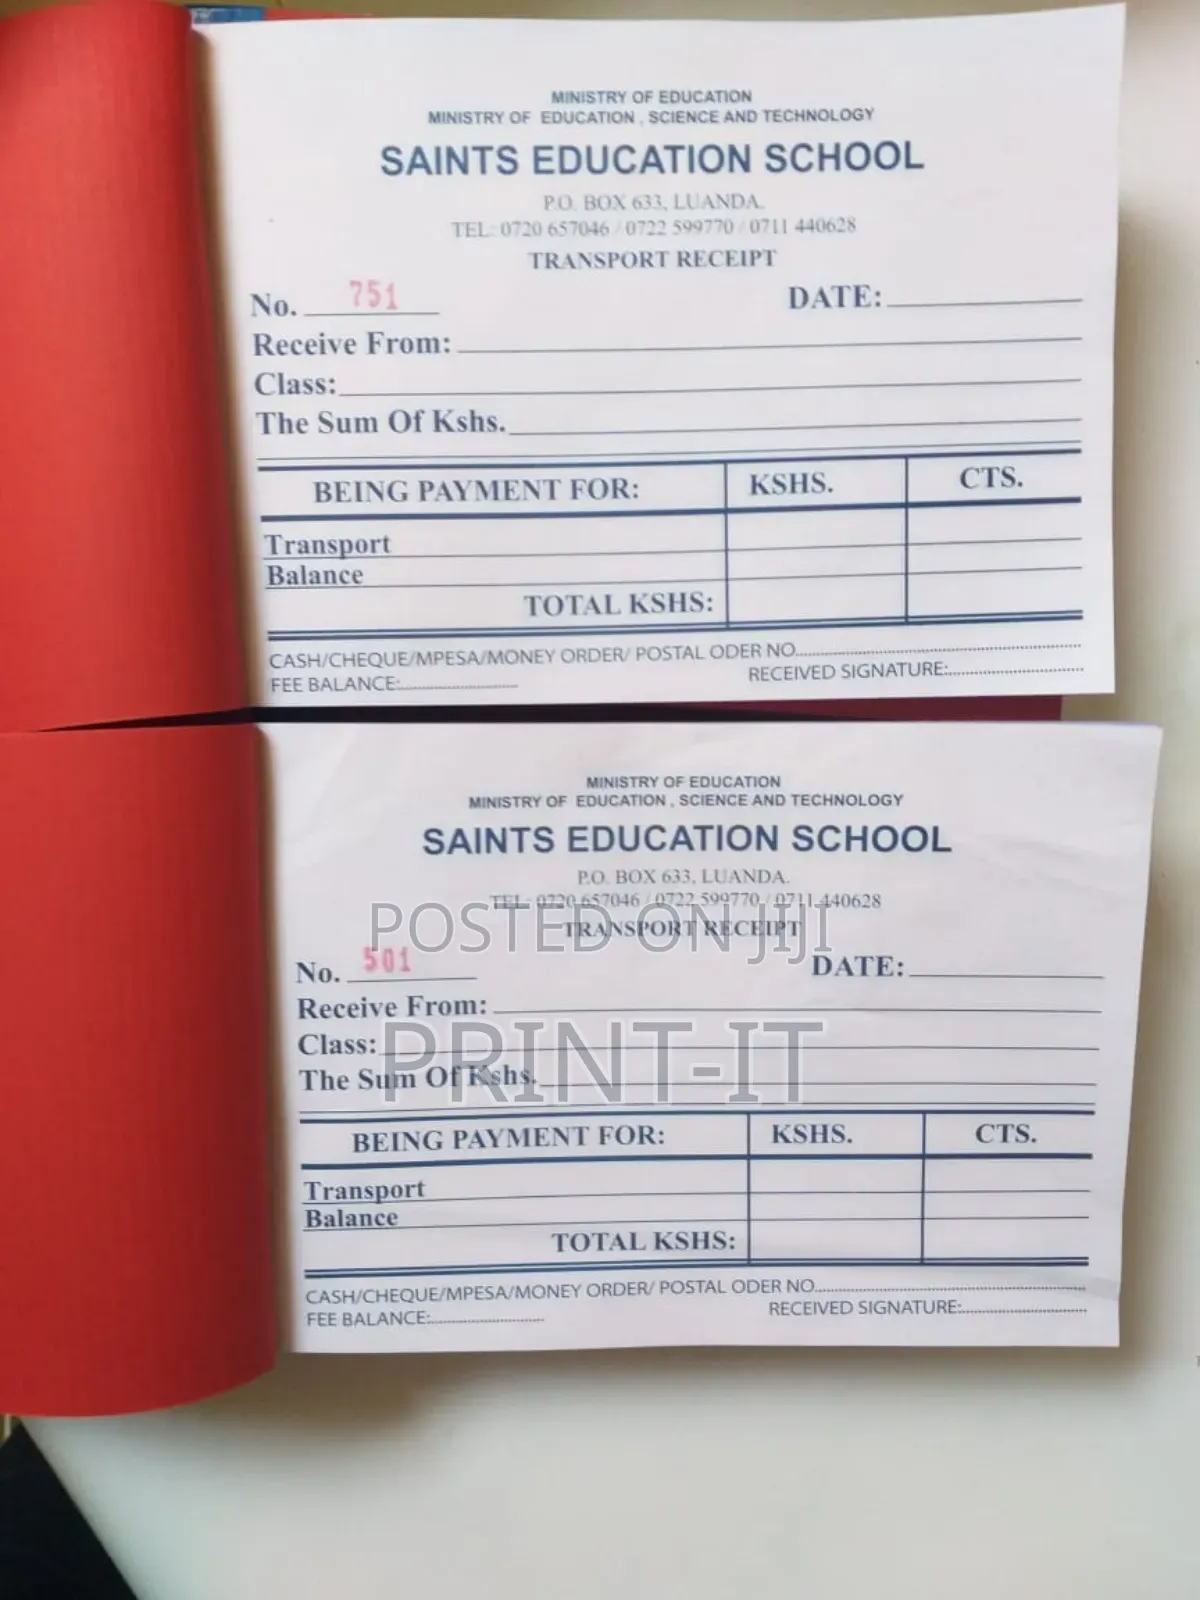 MINISTRY OF EDUCATION
MINISTRY OF EDUCATION , SCIENCE AND TECHNOLOGY
SAINTS EDUCATION SCHOOL
P.O. BOX 633, LUANDA.
TEL: 0720 657046 / 0722 599770 / 0711 440628
TRANSPORT RECEIPT
No. 751 DATE:
Receive From:
Class:
The Sum Of Kshs.
BEING PAYMENT FOR: KSHS. CTS.
Transport
Balance
TOTAL KSHS:
CASH/CHEQUE/MPESA/MONEY ORDER/ POSTAL ODER NO.
FEE BALANCE: RECEIVED SIGNATURE:
MINISTRY OF EDUCATION
MINISTRY OF EDUCATION , SCIENCE AND TECHNOLOGY
SAINTS EDUCATION SCHOOL
P.O. BOX 633, LUANDA.
TEL: 0720 657046 / 0722 599770 / 0711 440628
POSTED ON JIJI
TRANSPORT RECEIPT
No. 501 DATE:
Receive From:
PRINT-IT
Class:
The Sum Of Kshs.
BEING PAYMENT FOR: KSHS. CTS.
Transport
Balance
TOTAL KSHS:
CASH/CHEQUE/MPESA/MONEY ORDER/ POSTAL ODER NO.
FEE BALANCE: RECEIVED SIGNATURE: